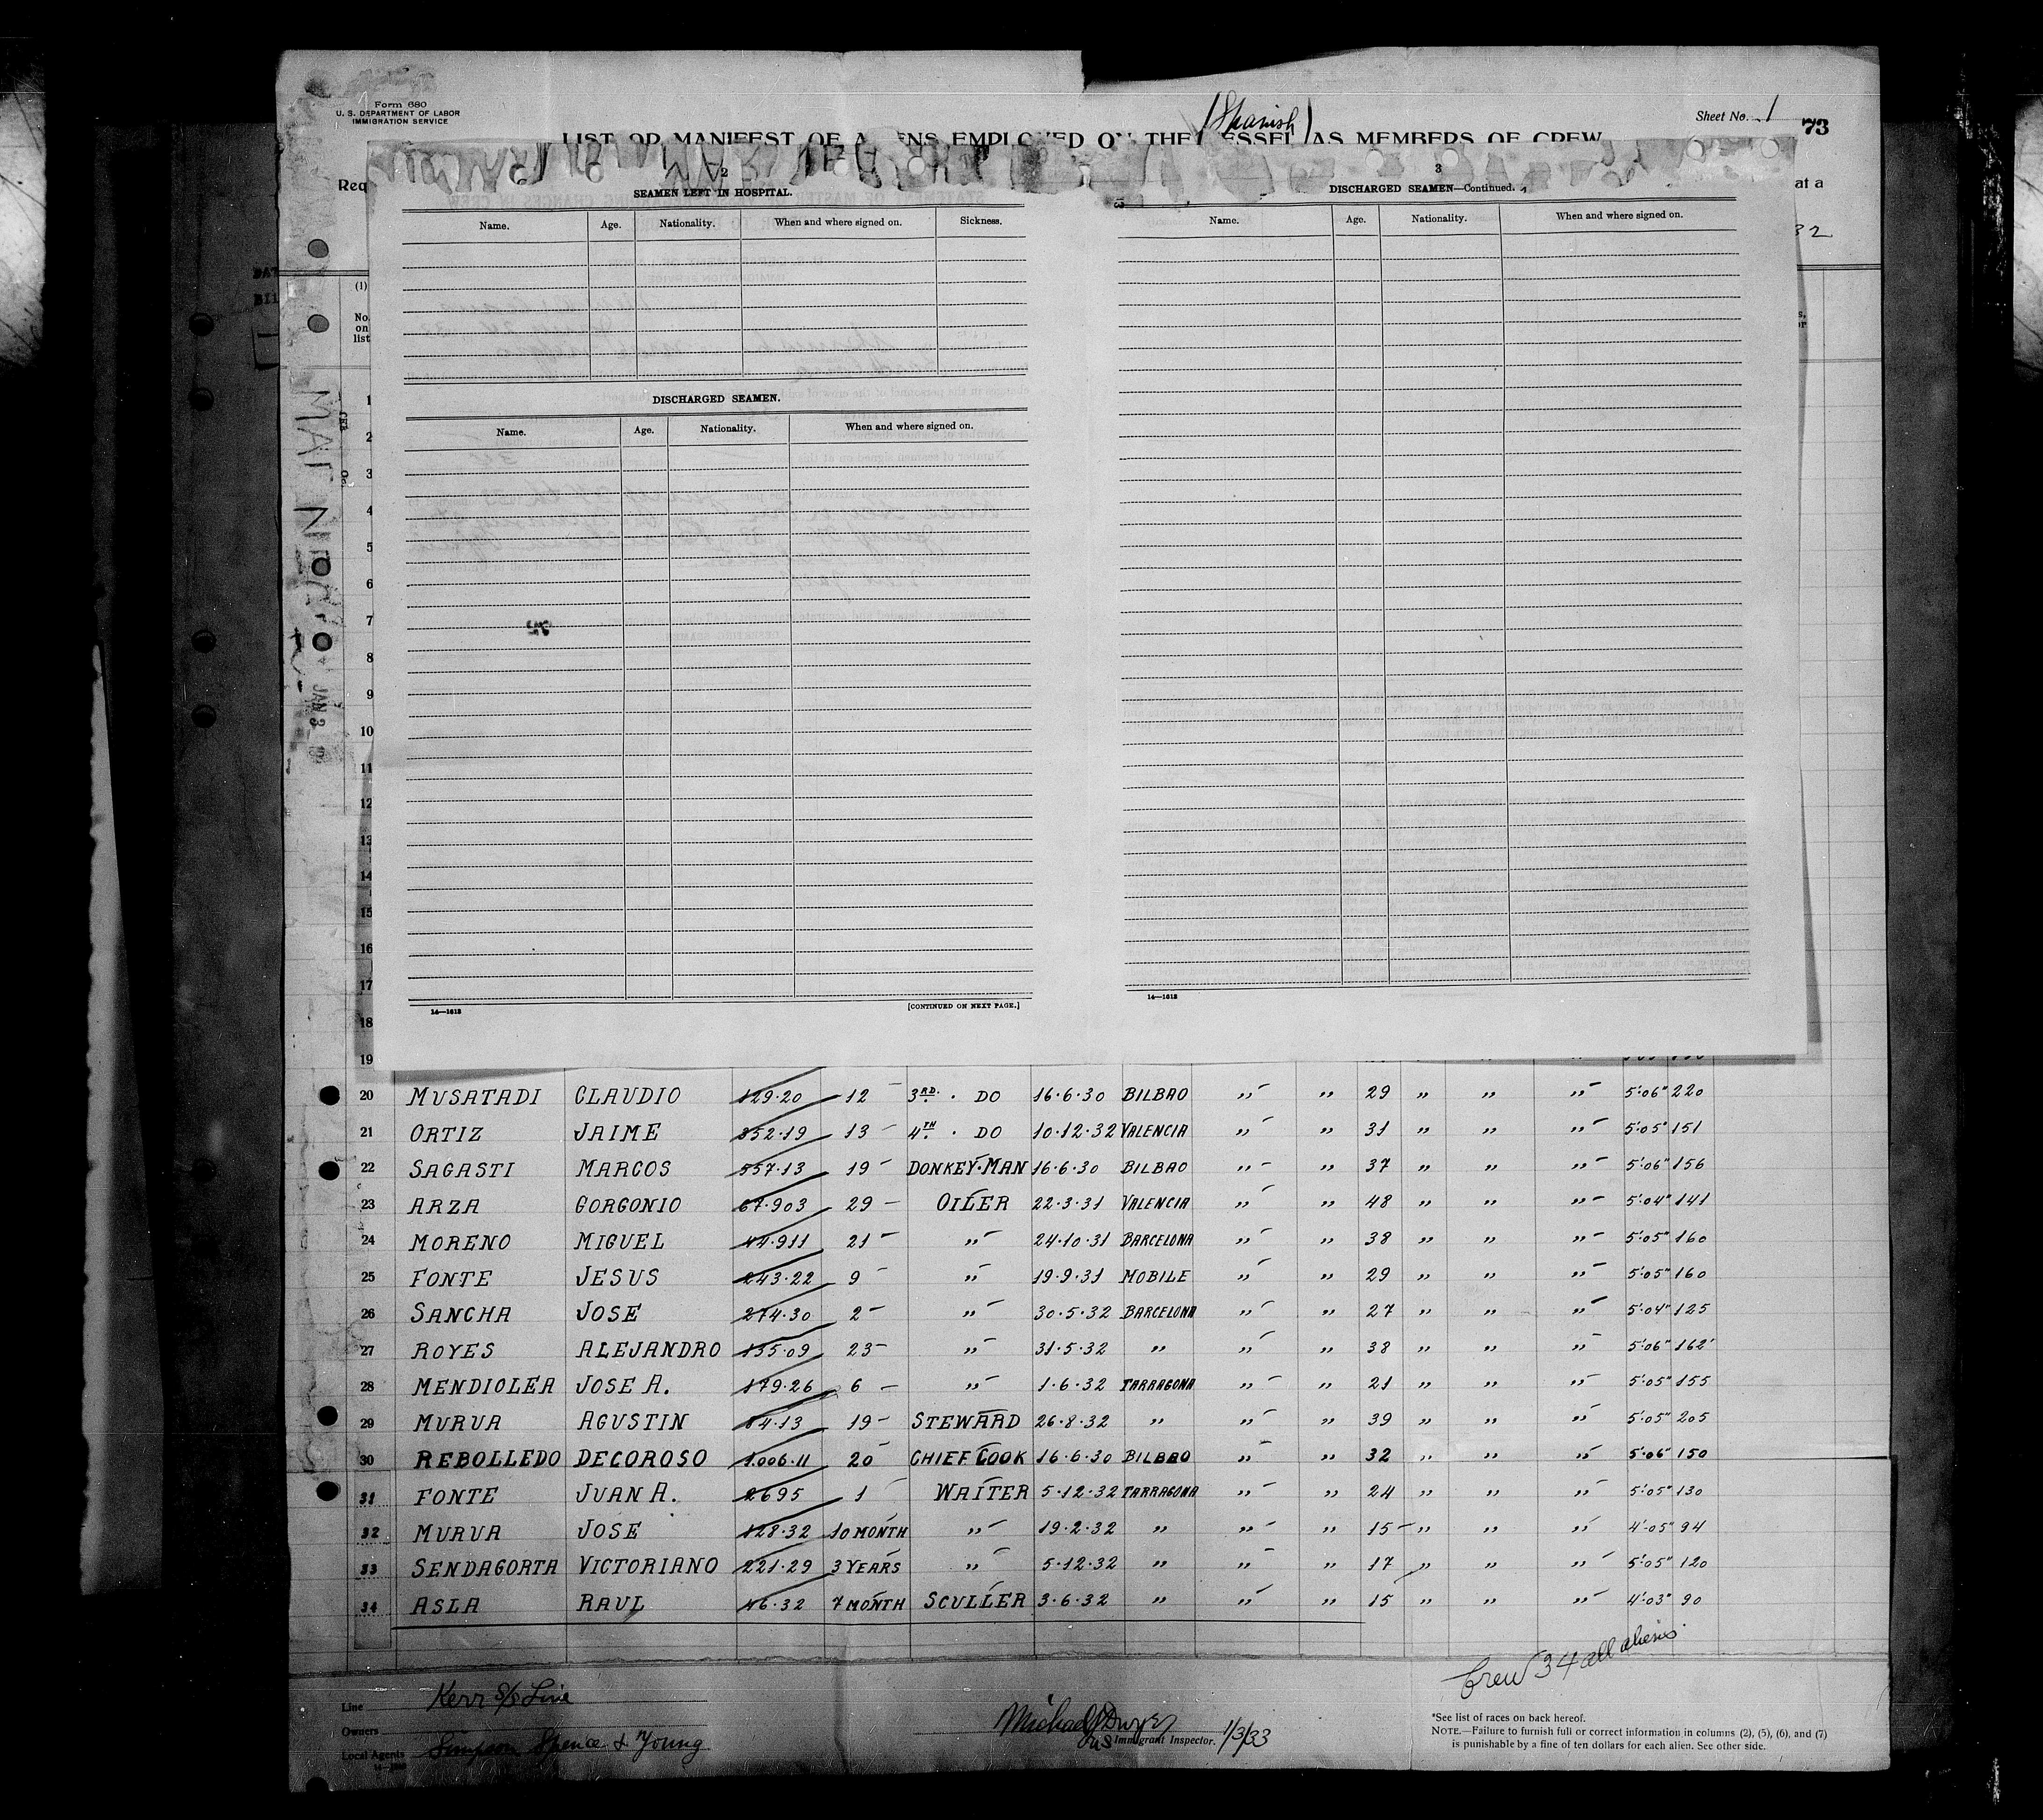 Form 680
U. S. DEPARTMENT OF LABOR
IMMIGRATION SERVICE
(Spanish)
Sheet No. 1
73
LIST OR MANIFEST OF ALIENS EMPLOYED ON THE VESSEL AS MEMBERS OF CREW
Req
at a
32
2
SEAMEN LEFT IN HOSPITAL.
Name. Age. Nationality. When and where signed on. Sickness.
DISCHARGED SEAMEN.
Name. Age. Nationality. When and where signed on.
14—1613
[CONTINUED ON NEXT PAGE.]
3
DISCHARGED SEAMEN—Continued.
Name. Age. Nationality. When and where signed on.
14—1613
(1)
No.
on
list
1
2
3
4
5
6
7
8
9
10
11
12
13
14
15
16
17
18
19
20 MUSATADI CLAUDIO 129·20 12 — 3RD. · DO 16·6·30 BILBAO ,, — ,, 29 ,, ,, ,, — 5'·06" 220
21 ORTIZ JAIME 352·19 13 — 4TH. · DO 10·12·32 VALENCIA ,, — ,, 31 ,, ,, ,, — 5'·05" 151
22 SAGASTI MARCOS 557·13 19 — DONKEY·MAN 16·6·30 BILBAO ,, — ,, 37 ,, ,, ,, — 5'·06" 156
23 ARZA GORGONIO 67·903 29 — OILER 22·3·31 VALENCIA ,, — ,, 48 ,, ,, ,, — 5'·04" 141
24 MORENO MIGUEL 44·911 21 — ,, — 24·10·31 BARCELONA ,, — ,, 38 ,, ,, ,, — 5'·05" 160
25 FONTE JESUS 243·22 9 — ,, — 19·9·31 MOBILE ,, — ,, 29 ,, ,, ,, — 5'·05" 160
26 SANCHA JOSE 274·30 2 — ,, — 30·5·32 BARCELONA ,, — ,, 27 ,, ,, ,, — 5'·04" 125
27 ROYES ALEJANDRO 155·09 23 — ,, — 31·5·32 ,, ,, — ,, 38 ,, ,, ,, — 5'·06" 162
28 MENDIOLEA JOSE A. 179·26 6 — ,, — 1·6·32 TARRAGONA ,, — ,, 21 ,, ,, ,, — 5'·05" 155
29 MURUA AGUSTIN 84·13 19 — STEWARD 26·8·32 ,, ,, — ,, 39 ,, ,, ,, — 5'·05" 205
30 REBOLLEDO DECOROSO 1.006·11 20 — CHIEF COOK 16·6·30 BILBAO ,, — ,, 32 ,, ,, ,, — 5'·06" 150
31 FONTE JUAN A. 2695 1 — WAITER 5·12·32 TARRAGONA ,, — ,, 24 ,, ,, ,, — 5'·05" 130
32 MURUA JOSE 128·32 10 MONTH ,, — 19·2·32 ,, ,, — ,, 15 — ,, ,, ,, — 4'·05" 94
33 SENDAGORTA VICTORIANO 221·29 3 YEARS ,, — 5·12·32 ,, ,, — ,, 17 ,, ,, ,, — 5'·05" 120
34 ASLA RAUL 46·32 7 MONTH SCULLER 3·6·32 ,, ,, — ,, 15 ,, ,, ,, — 4'·03" 90
Crew 34 all aliens
Line Kerr S/S Line
Owners
Local Agents Simpson Spence & Young
Michael J Dwyer
US Immigrant Inspector. 1/3/33
*See list of races on back hereof.
NOTE.—Failure to furnish full or correct information in columns (2), (5), (6), and (7)
is punishable by a fine of ten dollars for each alien. See other side.